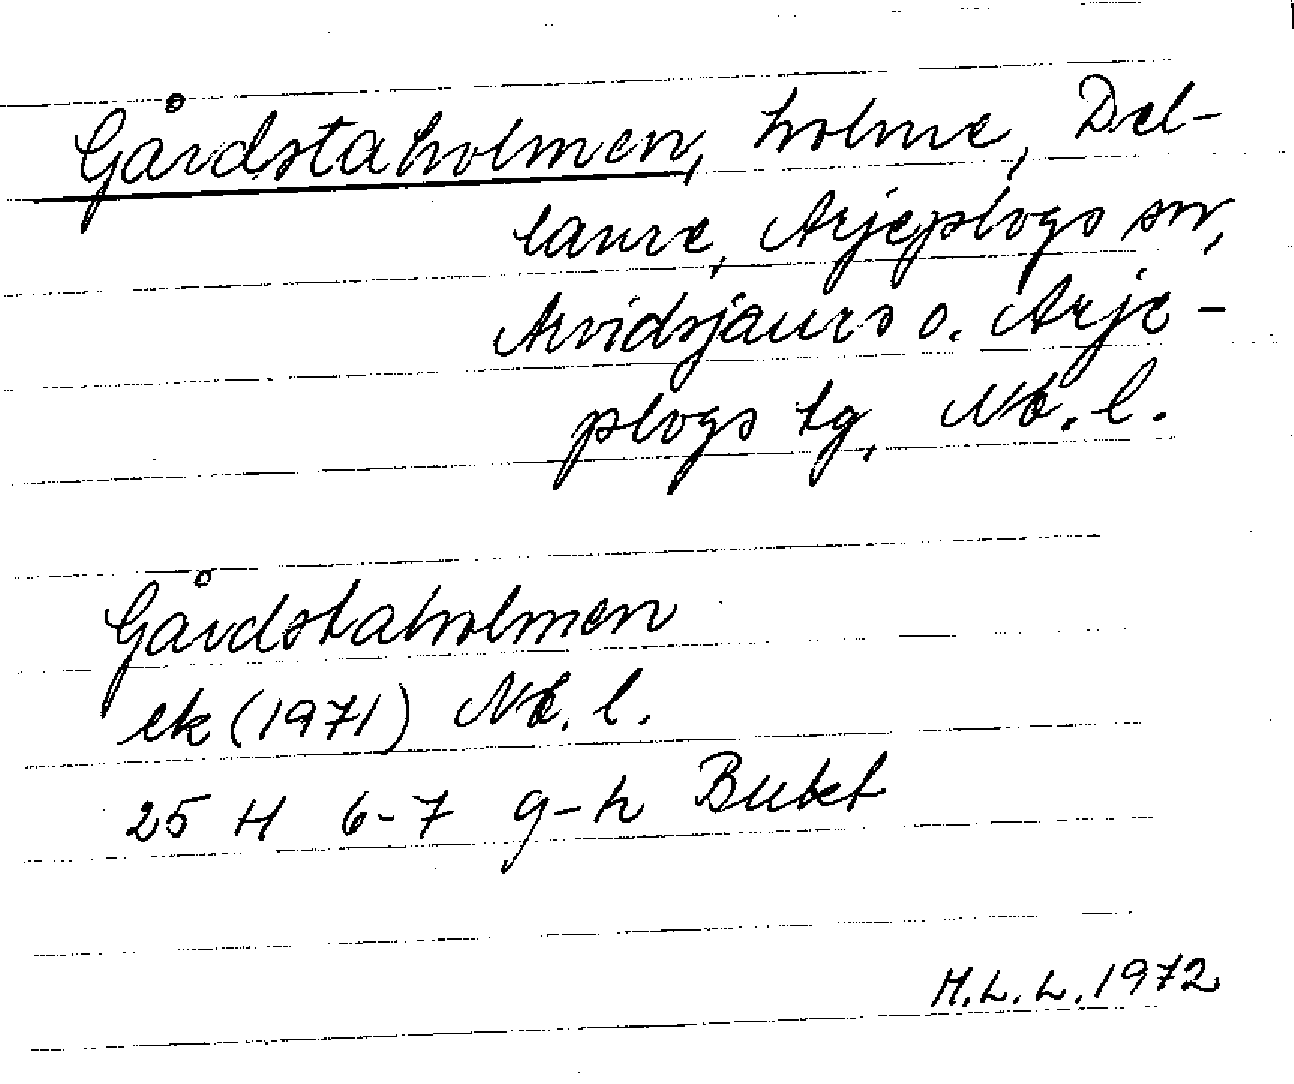 Gårdstaholmen, holme, Del-
laure, Arjeplogs sn,
Arvidsjaurs o. Arje-
plogs tg, Nb. l.
Gårdstaholmen
ek (1971) Nb. l.
25 H 6-7 g-h Buket
M.L.L. 1972